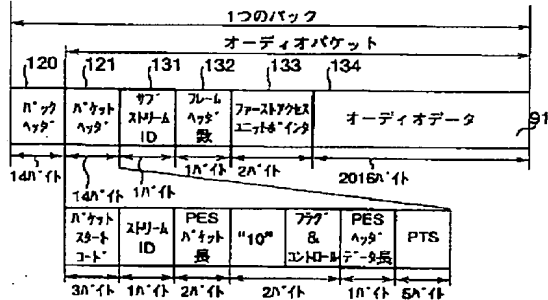 1つのパック
オーディオパケット
120 121 131 132 133 134
パックヘッダ
パケットヘッダ
サブストリームID
フレームヘッダ数
ファーストアクセスユニットポインタ
オーディオデータ
91
14バイト
14バイト
1バイト
1バイト
2バイト
2016バイト
パケットスタートコード
ストリームID
PESパケット長
"10"
フラグ&コントロール
PESヘッダデータ長
PTS
3バイト
1バイト
2バイト
2バイト
1バイト
5バイト